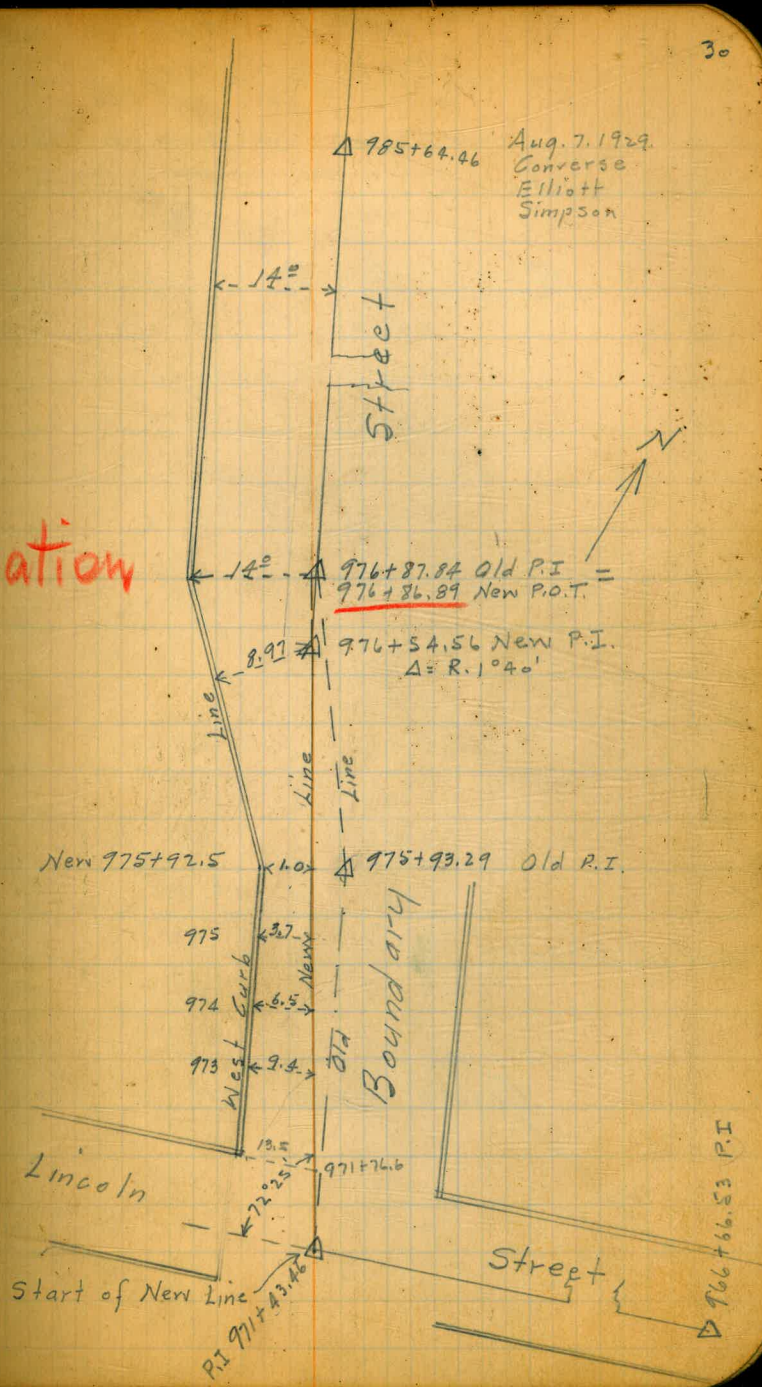 30
△ 985+64.46
Aug. 7. 1929.
Converse
Elliott
Simpson
14.0
Street
N
ation
14.0
976+87.84 Old P.I =
976+86.89 New P.O.T.
8.97
976+54.56 New P.I.
Δ = R. 1°40'
Line
Line
Line
New 975+92.5
1.0
975+93.29 Old P.I.
975
3.7
New
974
6.5
973
9.4
West Curb
Old
Boundary
13.5
971+76.6
72°25'
Lincoln
Street
Start of New Line
P.I 971+43.46
966+66.53 P.I